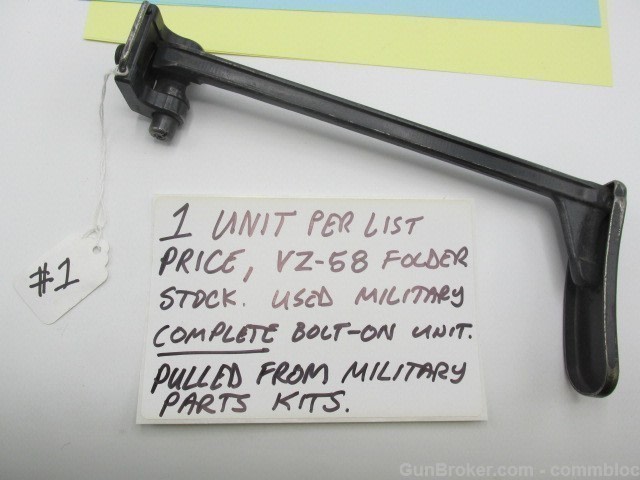 #1
1 UNIT PER LIST
PRICE, VZ-58 FOLDER
STOCK. USED MILITARY
COMPLETE BOLT-ON UNIT.
PULLED FROM MILITARY
PARTS KITS.
GunBroker.com - commbloc